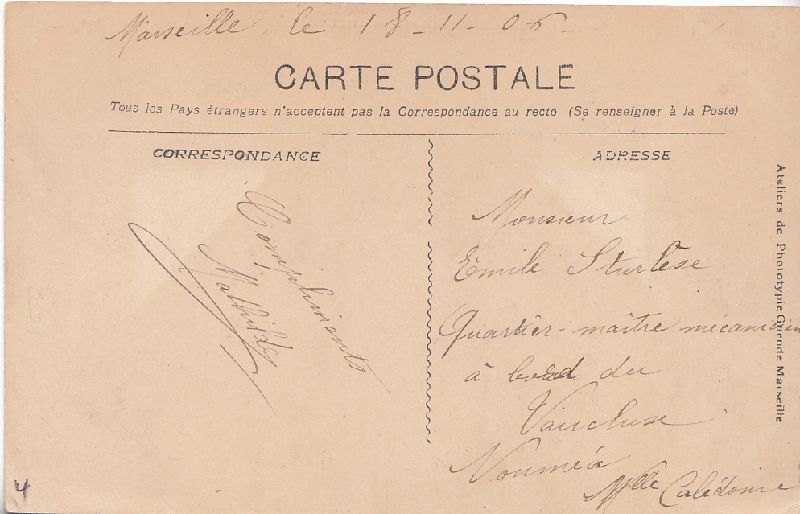 Marseille, le 18-11-06-
CARTE POSTALE
Tous les Pays étrangers n'acceptent pas la Correspondance au recto (Se renseigner à la Poste)
CORRESPONDANCE
Compliments
Mathilde
ADRESSE
Monsieur
Émile Sturlèse
Quartier-maître mécanicien
à bord du
Vaucluse
Nouméa
Nlle Calédonie
Ateliers de Phototypie Guende Marseille
4